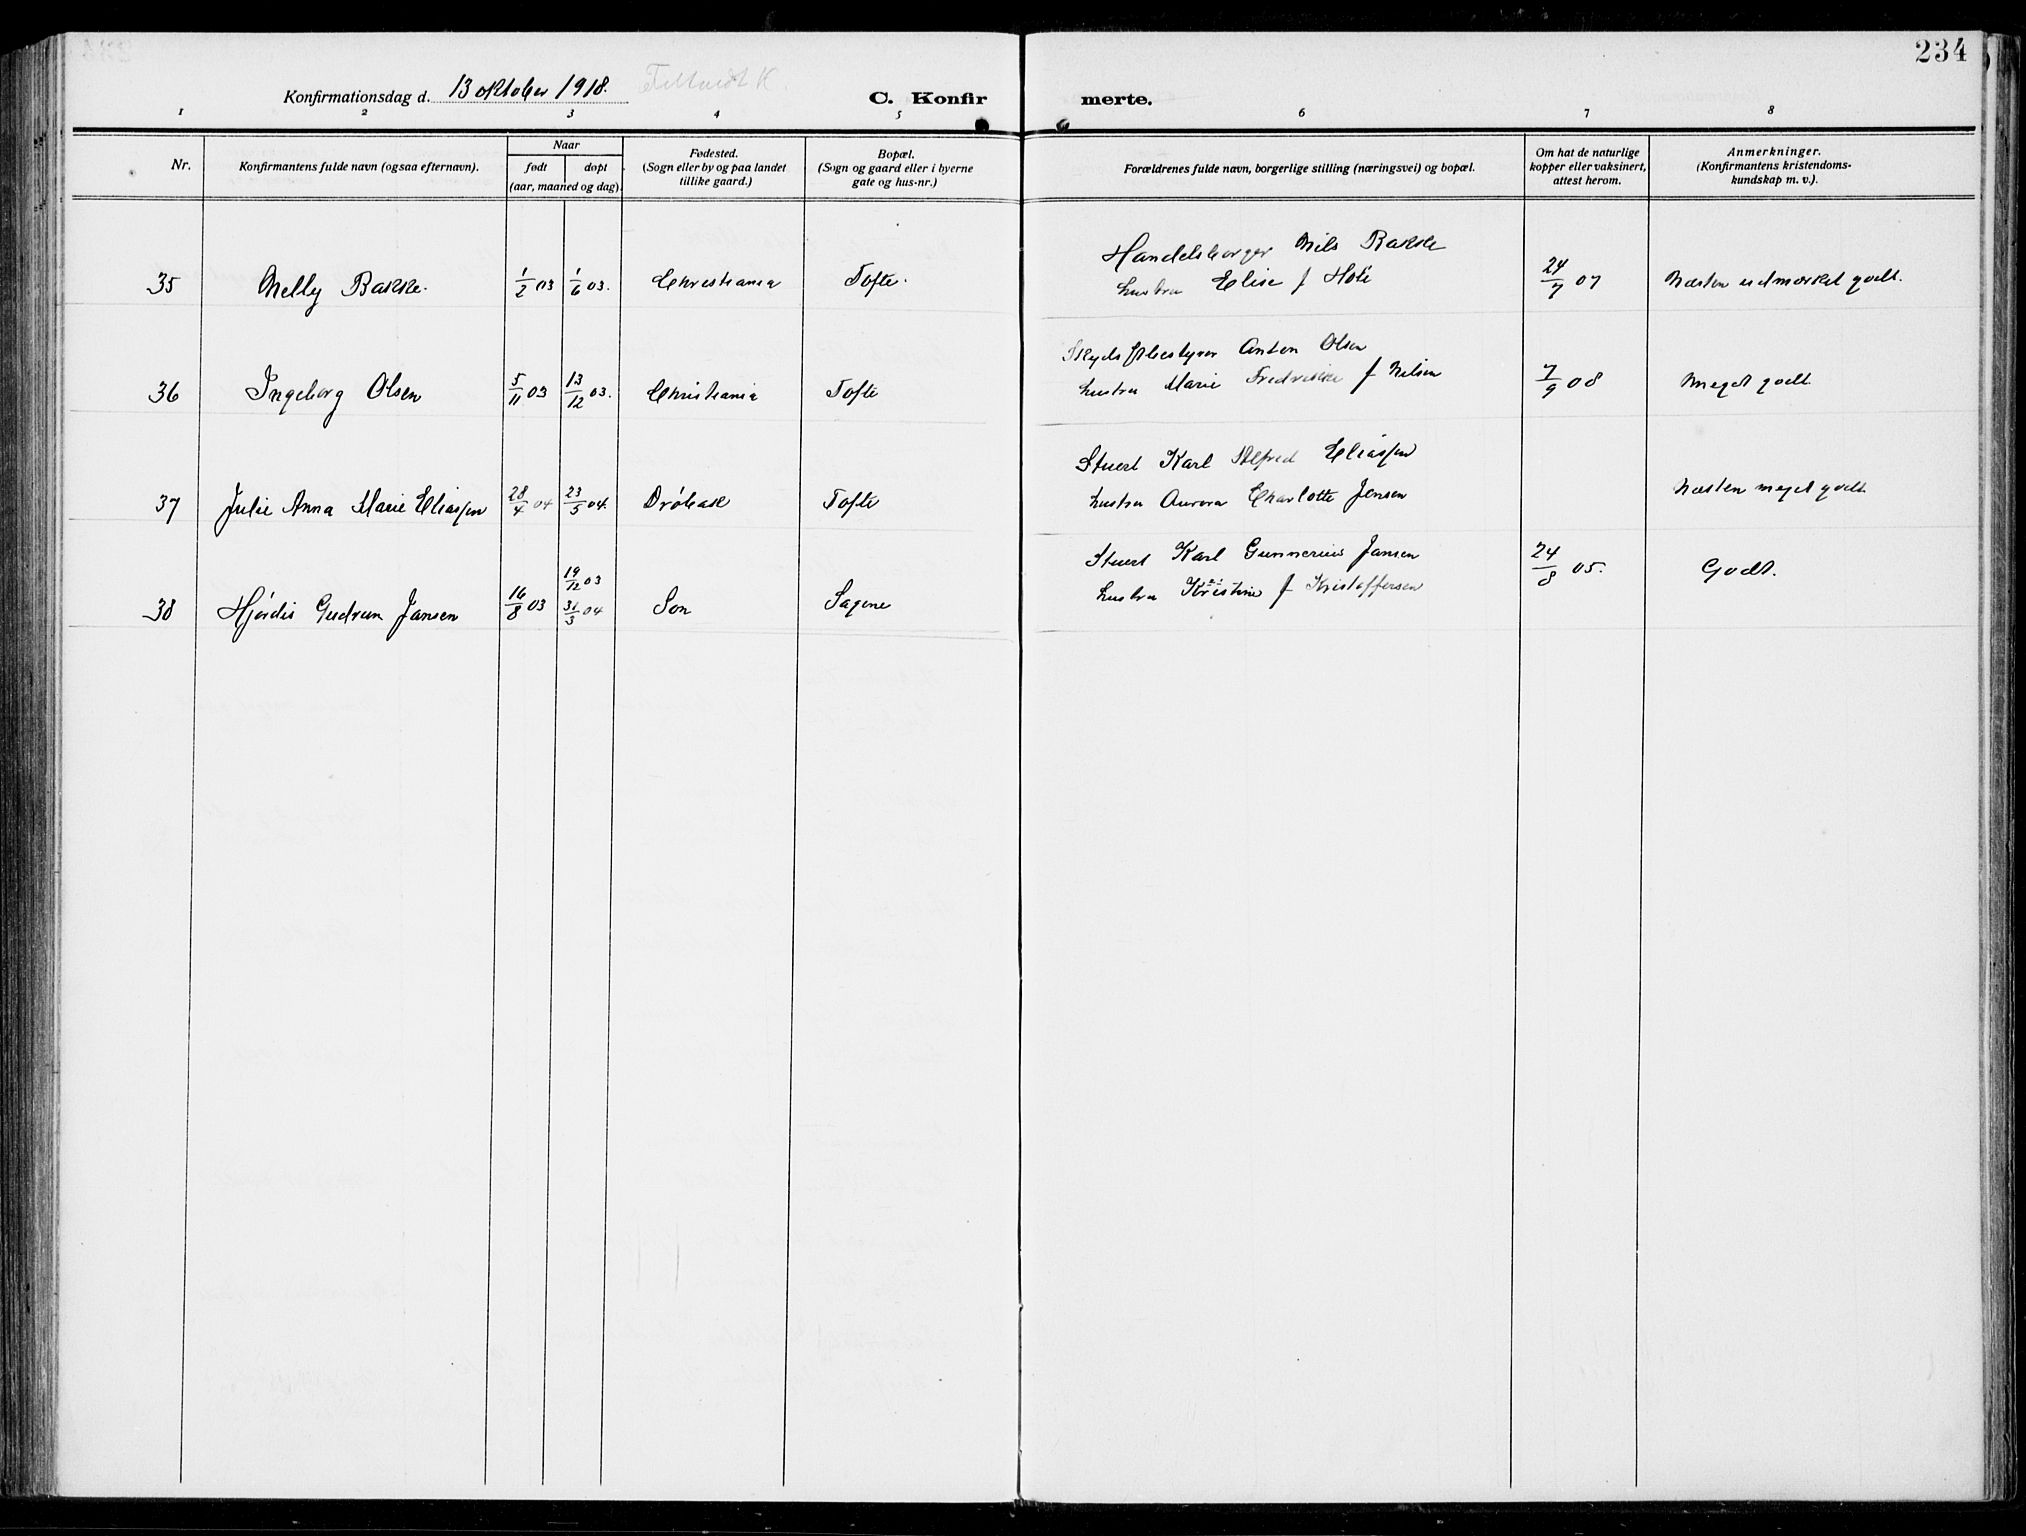 234
Konfirmationsdag d. 13 oktober 1918.
C. Konfir merte.
1 2 3 4 5 6 7 8
Nr.
Konfirmantens fulde navn (ogsaa efternavn).
Naar
født døpt
(aar, maaned og dag).
Fødested.
(Sogn eller by og paa landet
tillike gaard.)
Bopæl.
(Sogn og gaard eller i byerne
gate og hus-nr.)
Forældrenes fulde navn, borgerlige stilling (næringsvei) og bopæl.
Om hat de naturlige
kopper eller vaksinert,
attest herom.
Anmerkninger.
(Konfirmantens kristendoms-
kundskap m. v.).
Handelsborger Nils Bakke
35 Nelly Bakke. 1/2 03 1/6 03. Christiania Tofte. hustru Elise f 24/7 07 Næsten udmærket godt.
Anton Olsen
36 Ingeborg Olsen 5/11 03 13/12 03. Christiania Tofte hustru Marie Fredrikke f Nilsen 7/9 08 Meget godt
Stuert Karl Alfred Eliassen
37 Julie Anna Marie Eliassen 28/4 04 23/5 04. Drøbak Tofte hustru Aurora Charlotte Jensen Næsten meget godt
Stuert Karl Gunnerius Jansen
19/12 03
38 Hjørdis Gudrun Jansen 16/8 03 31/3 04 Son Sagene hustru Kristine f Kristoffersen 24/8 05. Godt.